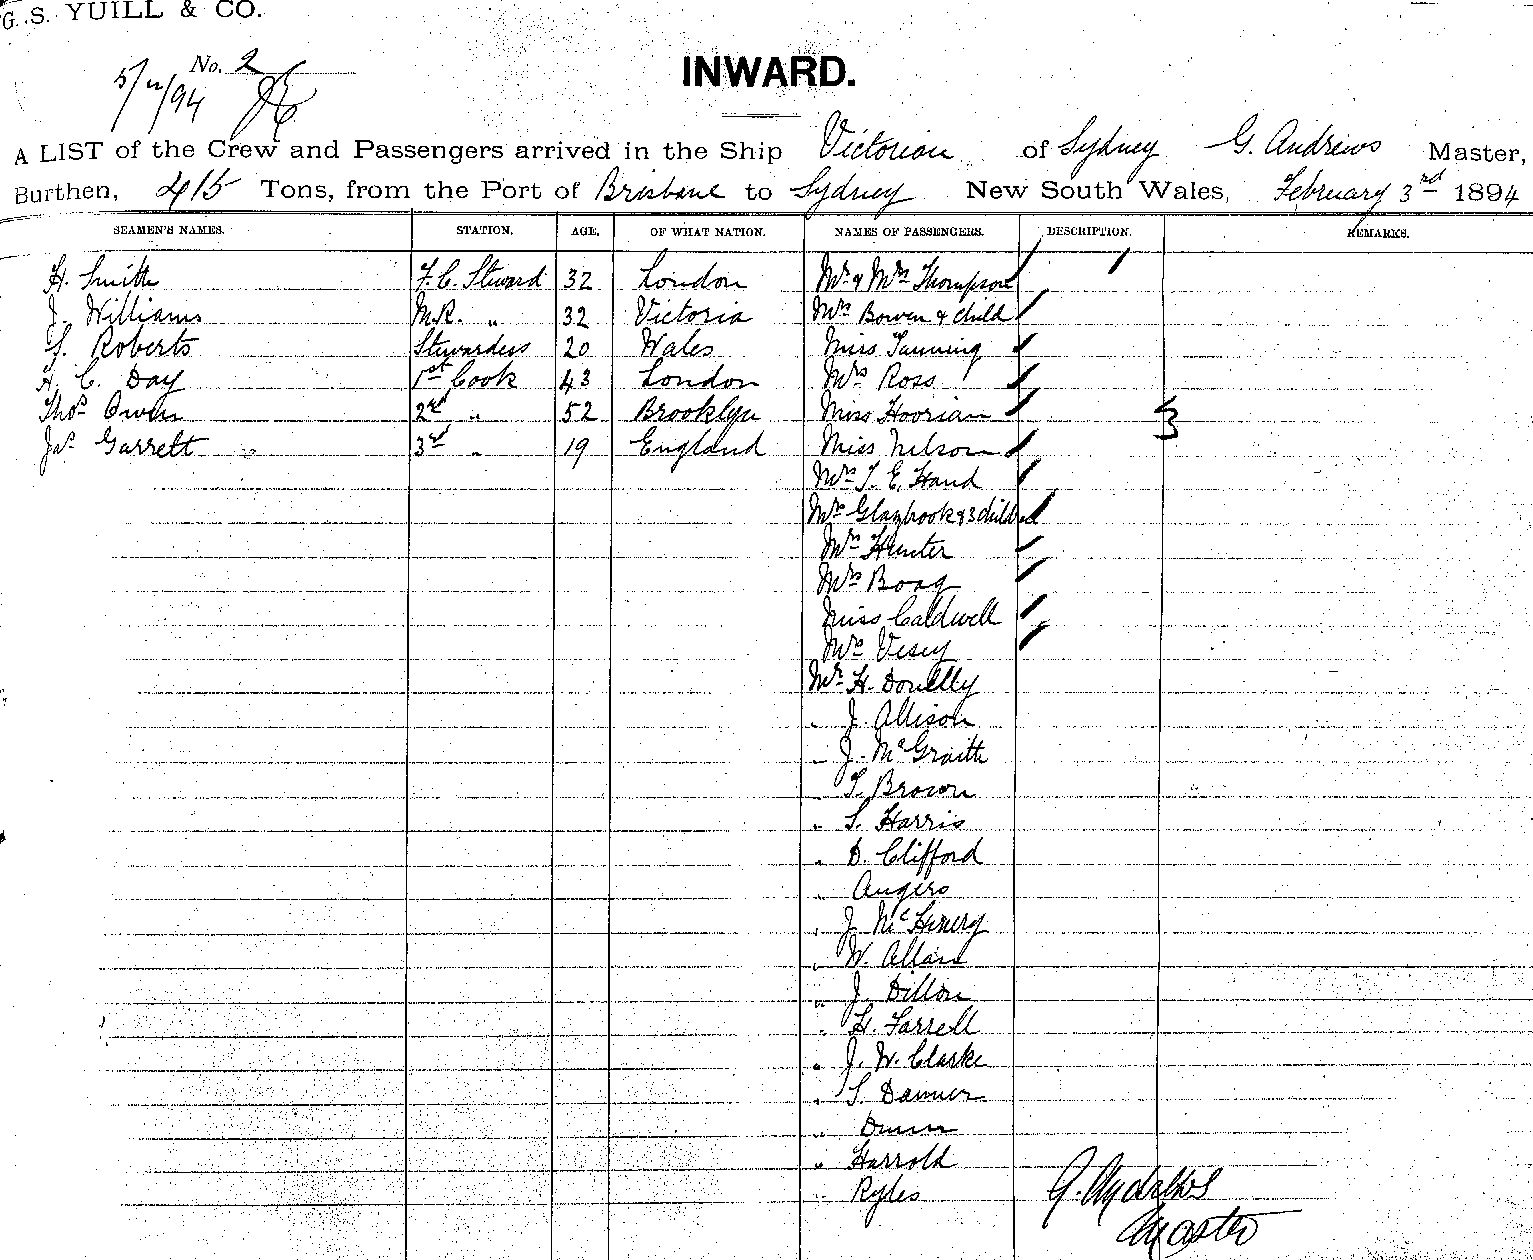 G. S. YUILL & CO.
No. 2
5/2/94
INWARD.
A LIST of the Crew and Passengers arrived in the Ship Victorian of Sydney G. Andrews Master,
Burthen, 415 Tons, from the Port of Brisbane to Sydney New South Wales, February 3rd 1894
SEAMEN'S NAMES. STATION. AGE. OF WHAT NATION. NAMES OF PASSENGERS. DESCRIPTION. REMARKS.
H. Smith F.C. Steward 32 London Mr & Mrs Thompson
J. Williams M.R. " 32 Victoria Mrs Bowen & child
S. Roberts Stewardess 20 Wales Miss Tanning
H. C. Day 1st Cook 43 London Mrs Ross
Thos Owen 2nd " 52 Brooklyn Miss Hoorian
Jas Garrett 3rd " 19 England Miss Nelson
Mrs T. E. Hand
Mrs Glazbrook & 3 children
Mrs Hunter
Mrs Boag
Miss Caldwell
Mrs Vesey
Mr H. Donelly
" J. Allison
" J. McGraith
" T. Brown
" S. Harris
" D. Clifford
" Angers
" J. McHenery
" W. Allan
" J. Dillon
" H. Farrell
" J. W. Clarke
" S.
" Dunn
" Harrold
" Ryles
G. Andrews
Master